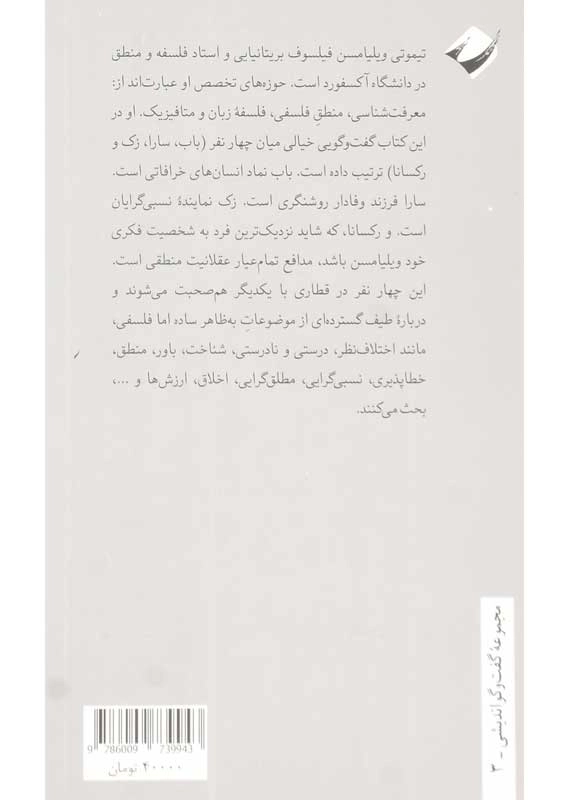 تیموتی ویلیامسن فیلسوف بریتانیایی و استاد فلسفه و منطق
در دانشگاه آکسفورد است. حوزه‌های تخصص او عبارت‌اند از:
معرفت‌شناسی، منطقِ فلسفی، فلسفهٔ زبان و متافیزیک. او در
این کتاب گفت‌وگویی خیالی میان چهار نفر (باب، سارا، زک و
رکسانا) ترتیب داده است. باب نماد انسان‌های خرافاتی است.
سارا فرزند وفادار روشنگری است. زک نمایندهٔ نسبی‌گرایان
است. و رکسانا، که شاید نزدیک‌ترین فرد به شخصیت فکری
خود ویلیامسن باشد، مدافع تمام‌عیار عقلانیت منطقی است.
این چهار نفر در قطاری با یکدیگر هم‌صحبت می‌شوند و
دربارهٔ طیف گسترده‌ای از موضوعاتِ به‌ظاهر ساده اما فلسفی،
مانند اختلاف‌نظر، درستی و نادرستی، شناخت، باور، منطق،
خطاپذیری، نسبی‌گرایی، مطلق‌گرایی، اخلاق، ارزش‌ها و ...،
بحث می‌کنند.
مجموعهٔ گفت‌وگو اندیشی - ۳
9 786009 739943
۴۰۰۰۰ تومان